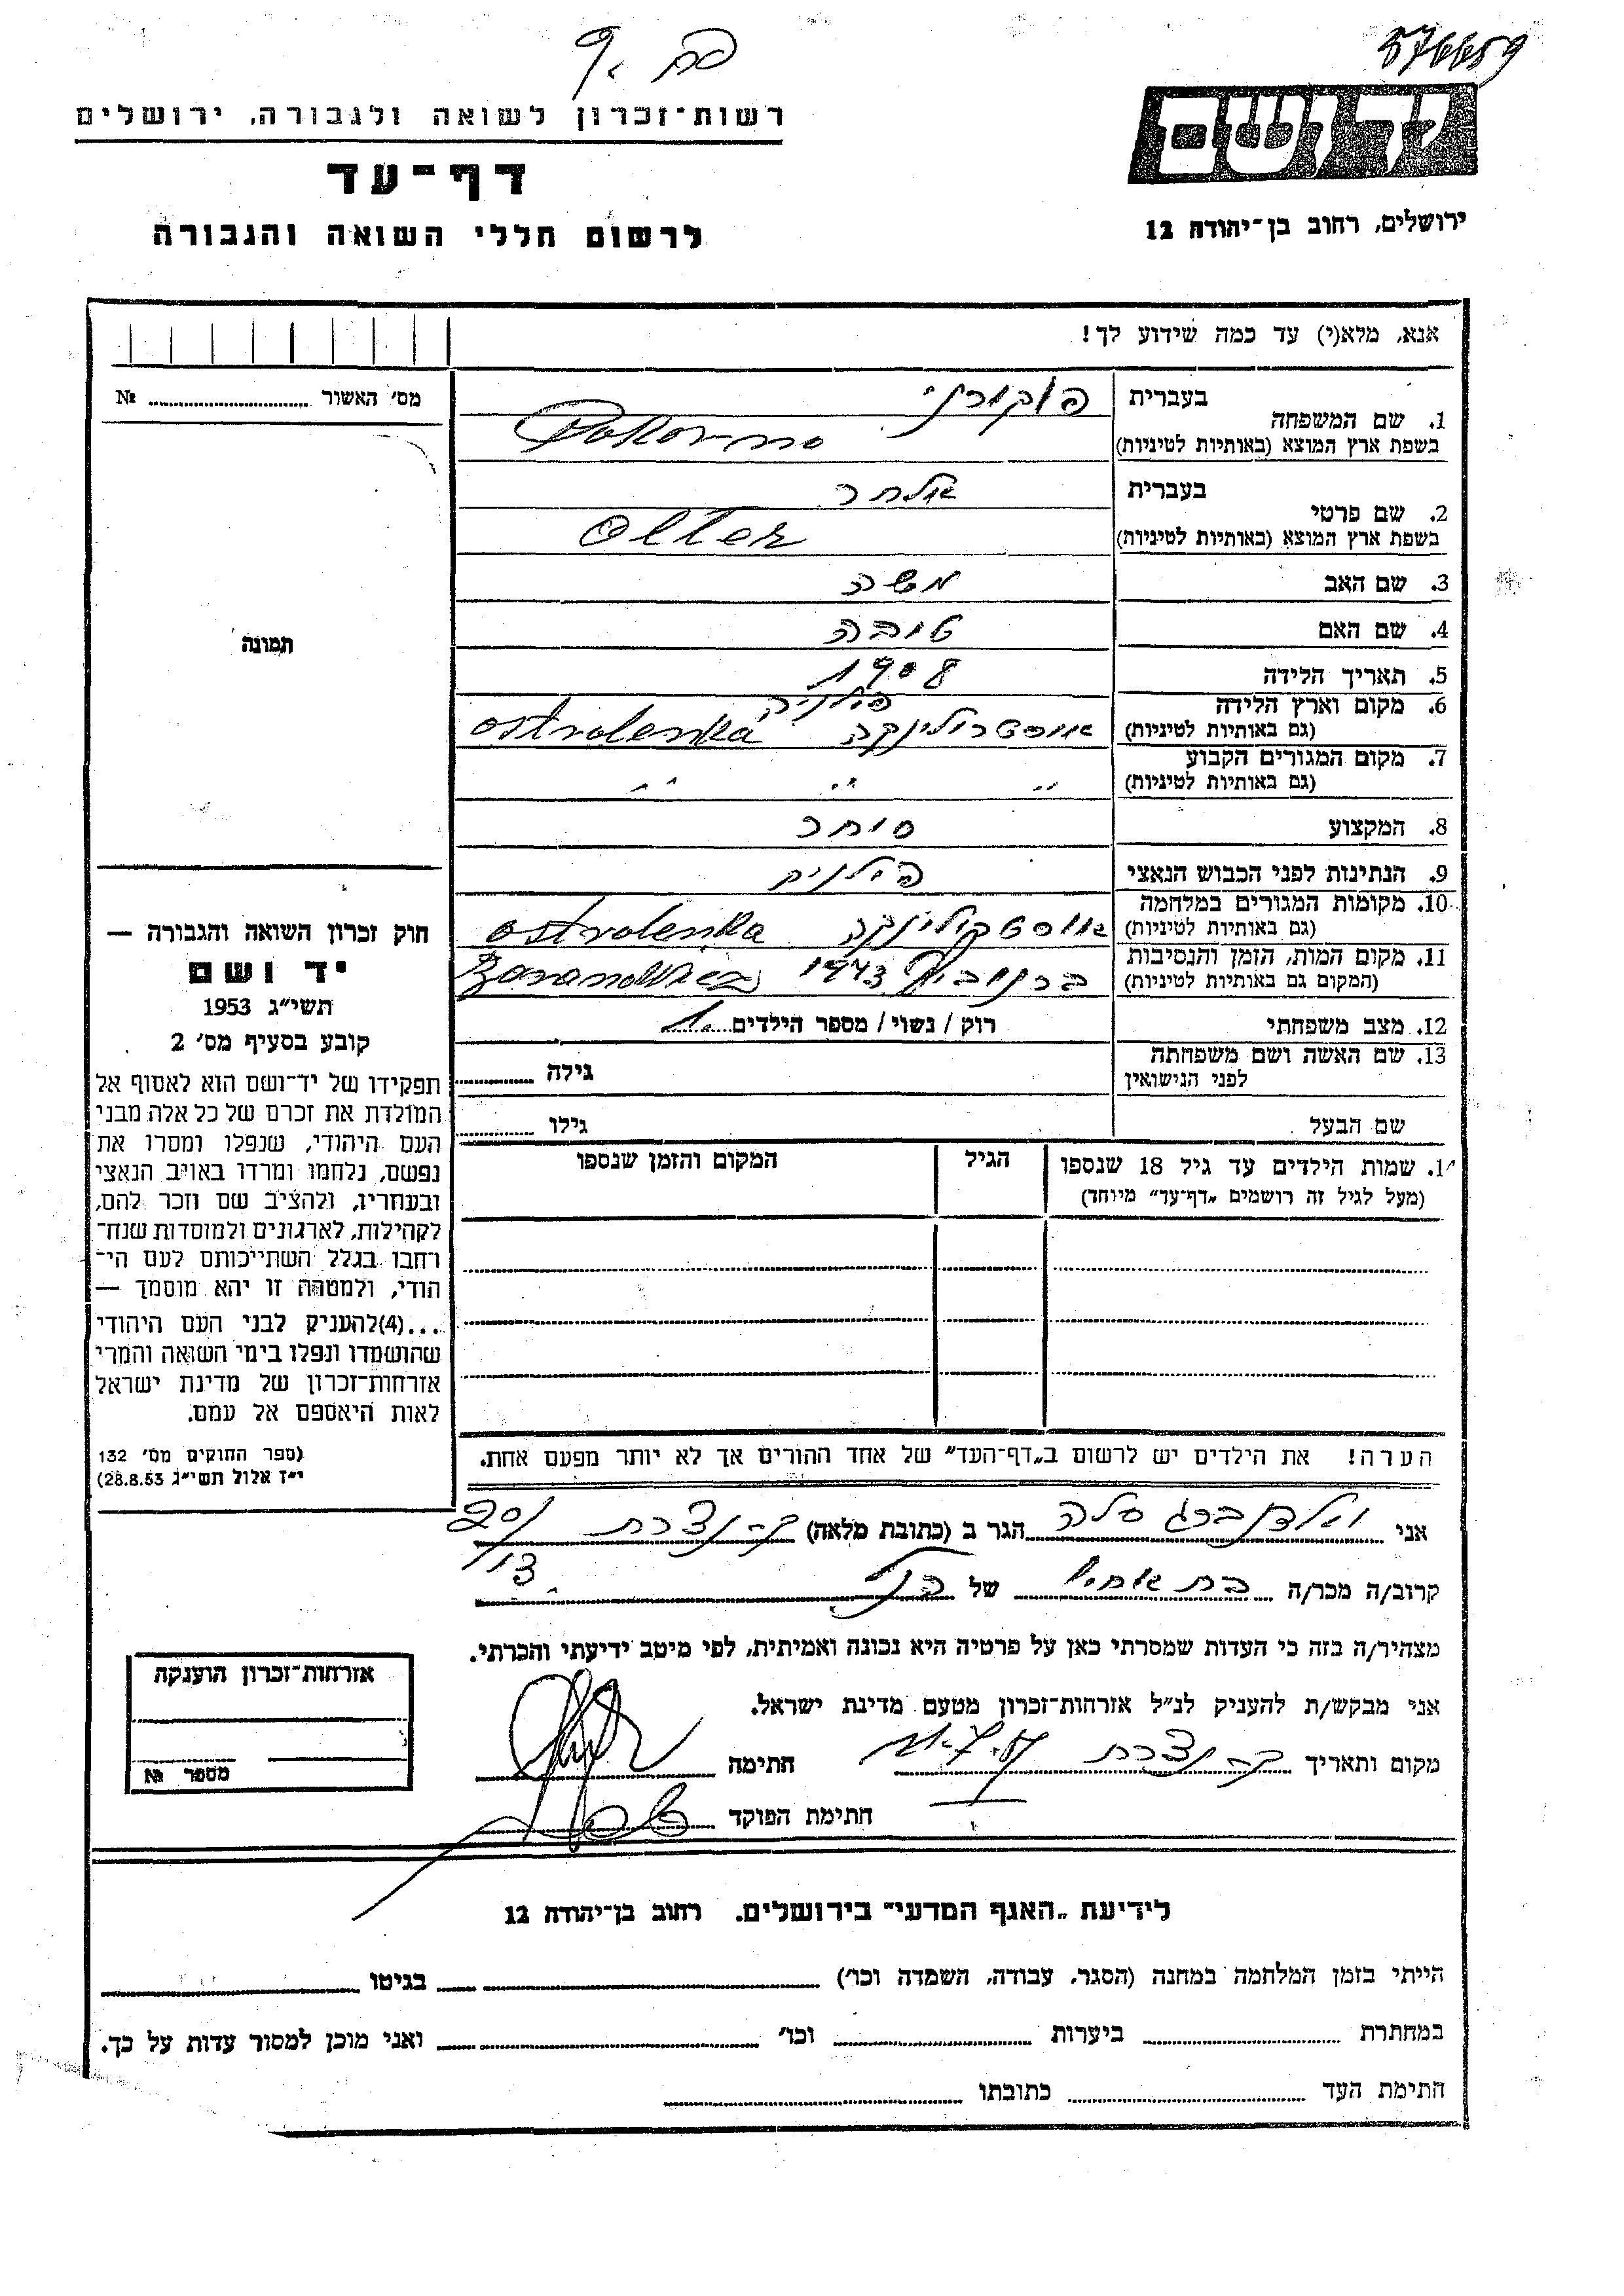 576659
פה .9
יד ושם
ירושלים, רחוב בן־יהודה 12
רשות־זכרון לשואה ולגבורה, ירושלים
דף־עד
לרשום חללי השואה והגבורה
אנא, מלא(י) עד כמה שידוע לך!
מס׳ האשור № 
1. שם המשפחה
בעברית פוקורני
בשפת ארץ המוצא (באותיות לטיניות)
2. שם פרטי
בעברית אלתר
בשפת ארץ המוצא (באותיות לטיניות) Olter
3. שם האב משה
4. שם האם טובה
5. תאריך הלידה 1908
6. מקום וארץ הלידה פולניה
(גם באותיות לטיניות) אוסטרולינקה Ostrolenka
7. מקום המגורים הקבוע
(גם באותיות לטיניות) ״ ״ ״
8. המקצוע סוחר
9. הנתינות לפני הכבוש הנאצי פולנית
10. מקומות המגורים במלחמה
(גם באותיות לטיניות) אוסטרולינקה Ostrolenka
11. מקום המות, הזמן והנסיבות
(המקום גם באותיות לטיניות) 1943
12. מצב משפחתי רוק / נשוי / מספר הילדים 1
13. שם האשה ושם משפחתה
לפני הנישואין גילה
שם הבעל גילו
1. שמות הילדים עד גיל 18 שנספו הגיל המקום והזמן שנספו
(מעל לגיל זה רושמים „דף־עד״ מיוחד)
הערה! את הילדים יש לרשום ב„דף־העד״ של אחד ההורים אך לא יותר מפעם אחת.
תמונה
חוק זכרון השואה והגבורה —
יד ושם
תשי״ג 1953
קובע בסעיף מס׳ 2
תפקידו של יד־ושם הוא לאסוף אל
המולדת את זכרם של כל אלה מבני
העם היהודי, שנפלו ומסרו את
נפשם, נלחמו ומרדו באויב הנאצי
ובעוזריו, ולהציב שם וזכר להם,
לקהילות, לארגונים ולמוסדות שנח־
רחבו בגלל השתייכותם לעם הי־
הודי, ולמטרה זו יהא מוסמך —
...(4)להעניק לבני העם היהודי
שהושמדו ונפלו בימי השואה והמרי
אזרחות־זכרון של מדינת ישראל
לאות היאספם אל עמם.
(ספר החוקים מס׳ 132
י״ז אלול תשי״ג 28.8.53)
אני ולדנברג סלה הגר ב (כתובת מלאה) ק. נצרת 20/
13
קרוב/ה מכר/ה בת אחיו של הנ״ל
מצהיר/ה בזה כי העדות שמסרתי כאן על פרטיה היא נכונה ואמיתית, לפי מיטב ידיעתי והכרתי.
אני מבקש/ת להעניק לנ״ל אזרחות־זכרון מטעם מדינת ישראל.
מקום ותאריך ק. נצרת חתימה
חתימת הפוקד
אזרחות־זכרון הוענקה
מספר №
לידיעת „האגף המדעי״ בירושלים. רחוב בן־יהודה 12
הייתי בזמן המלחמה במחנה (הסגר, עבודה, השמדה וכו׳) בגיטו
במחתרת ביערות וכו׳ ואני מוכן למסור עדות על כך.
חתימת העד כתובתו